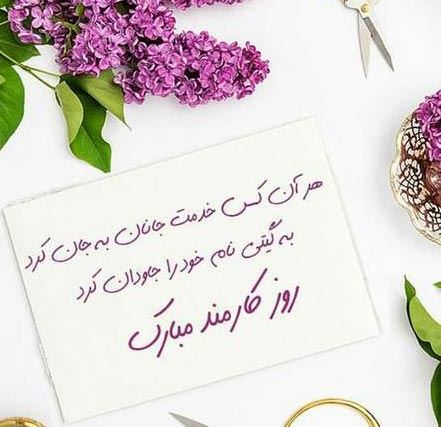 هر آن کس خدمت جانان به جان کرد
به گیتی نام خود را جاودان کرد
روز کارمند مبارک